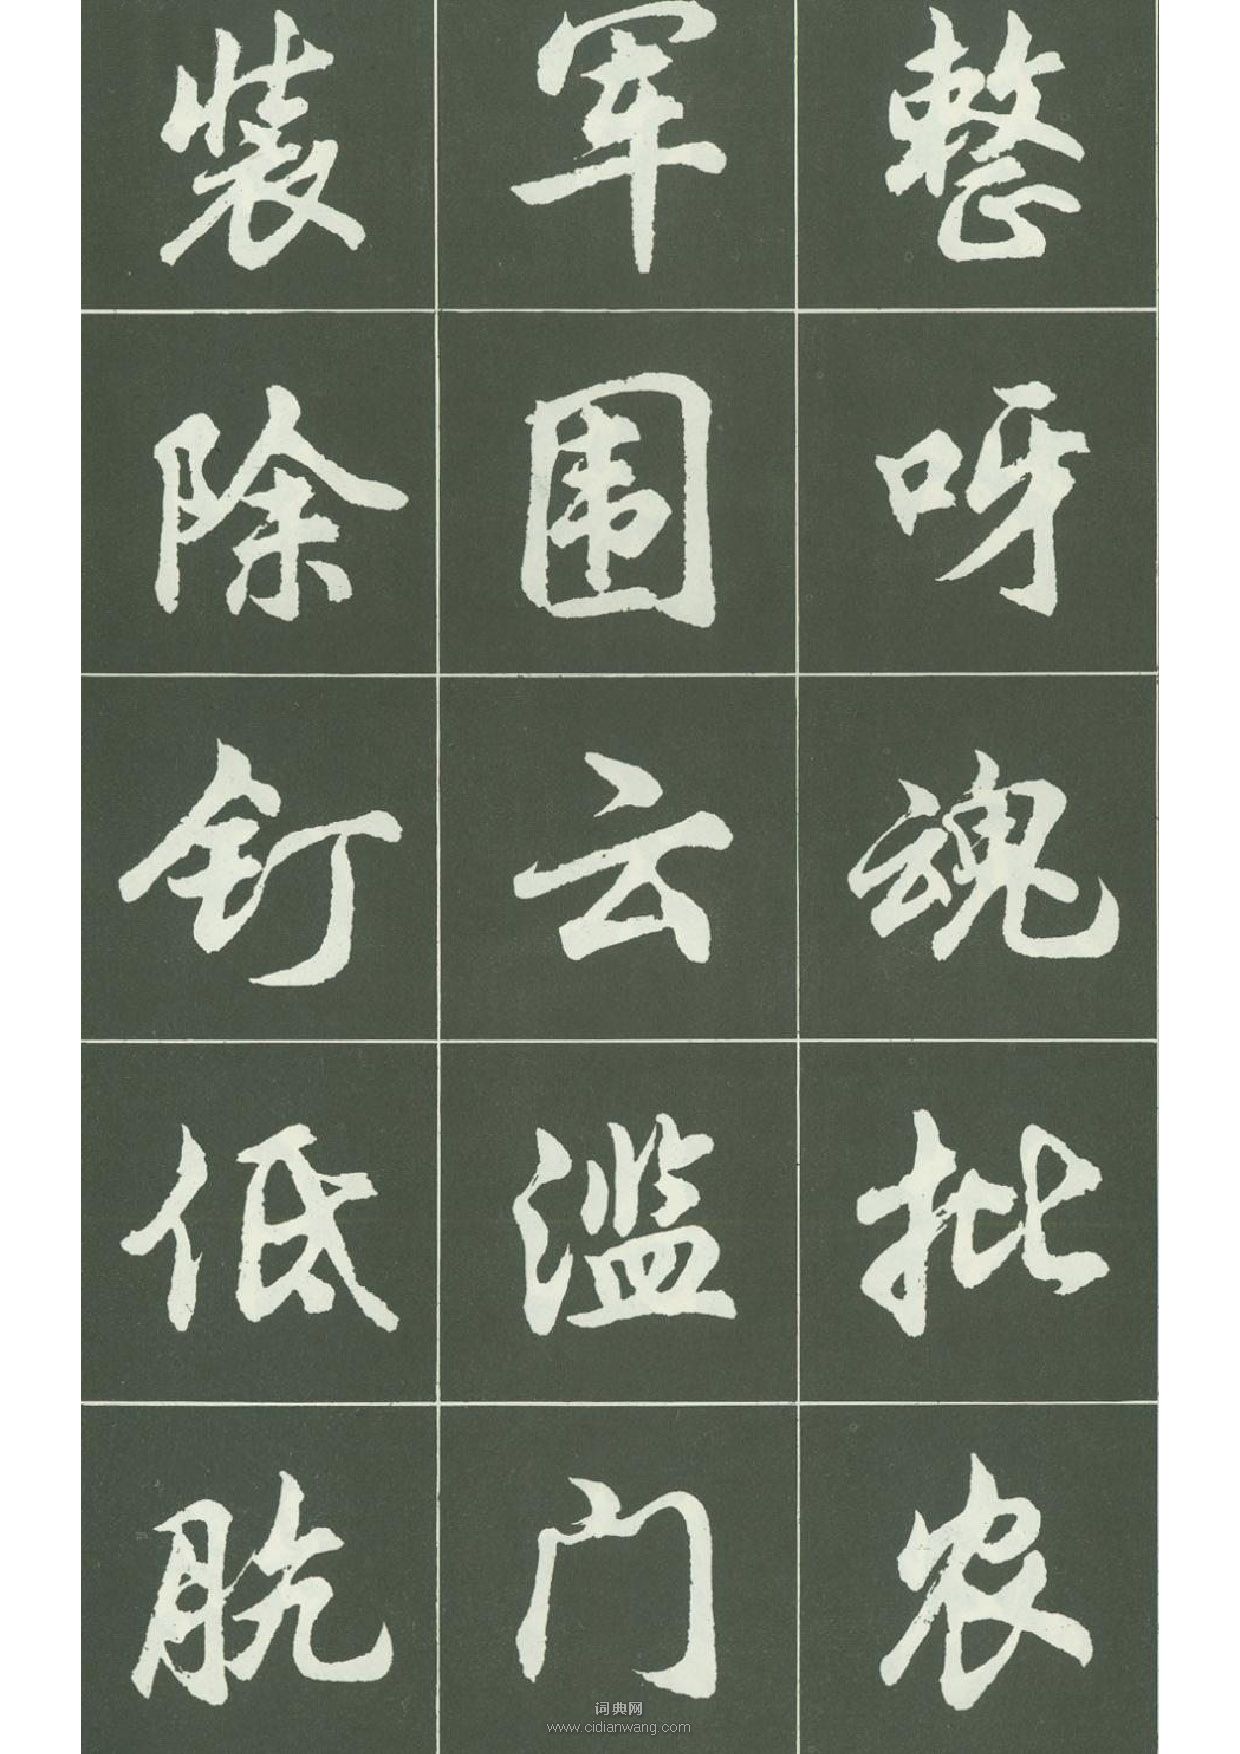 装军整
除围呀
钉云魂
低滥批
脱门农
词典网
www.cidianwang.com